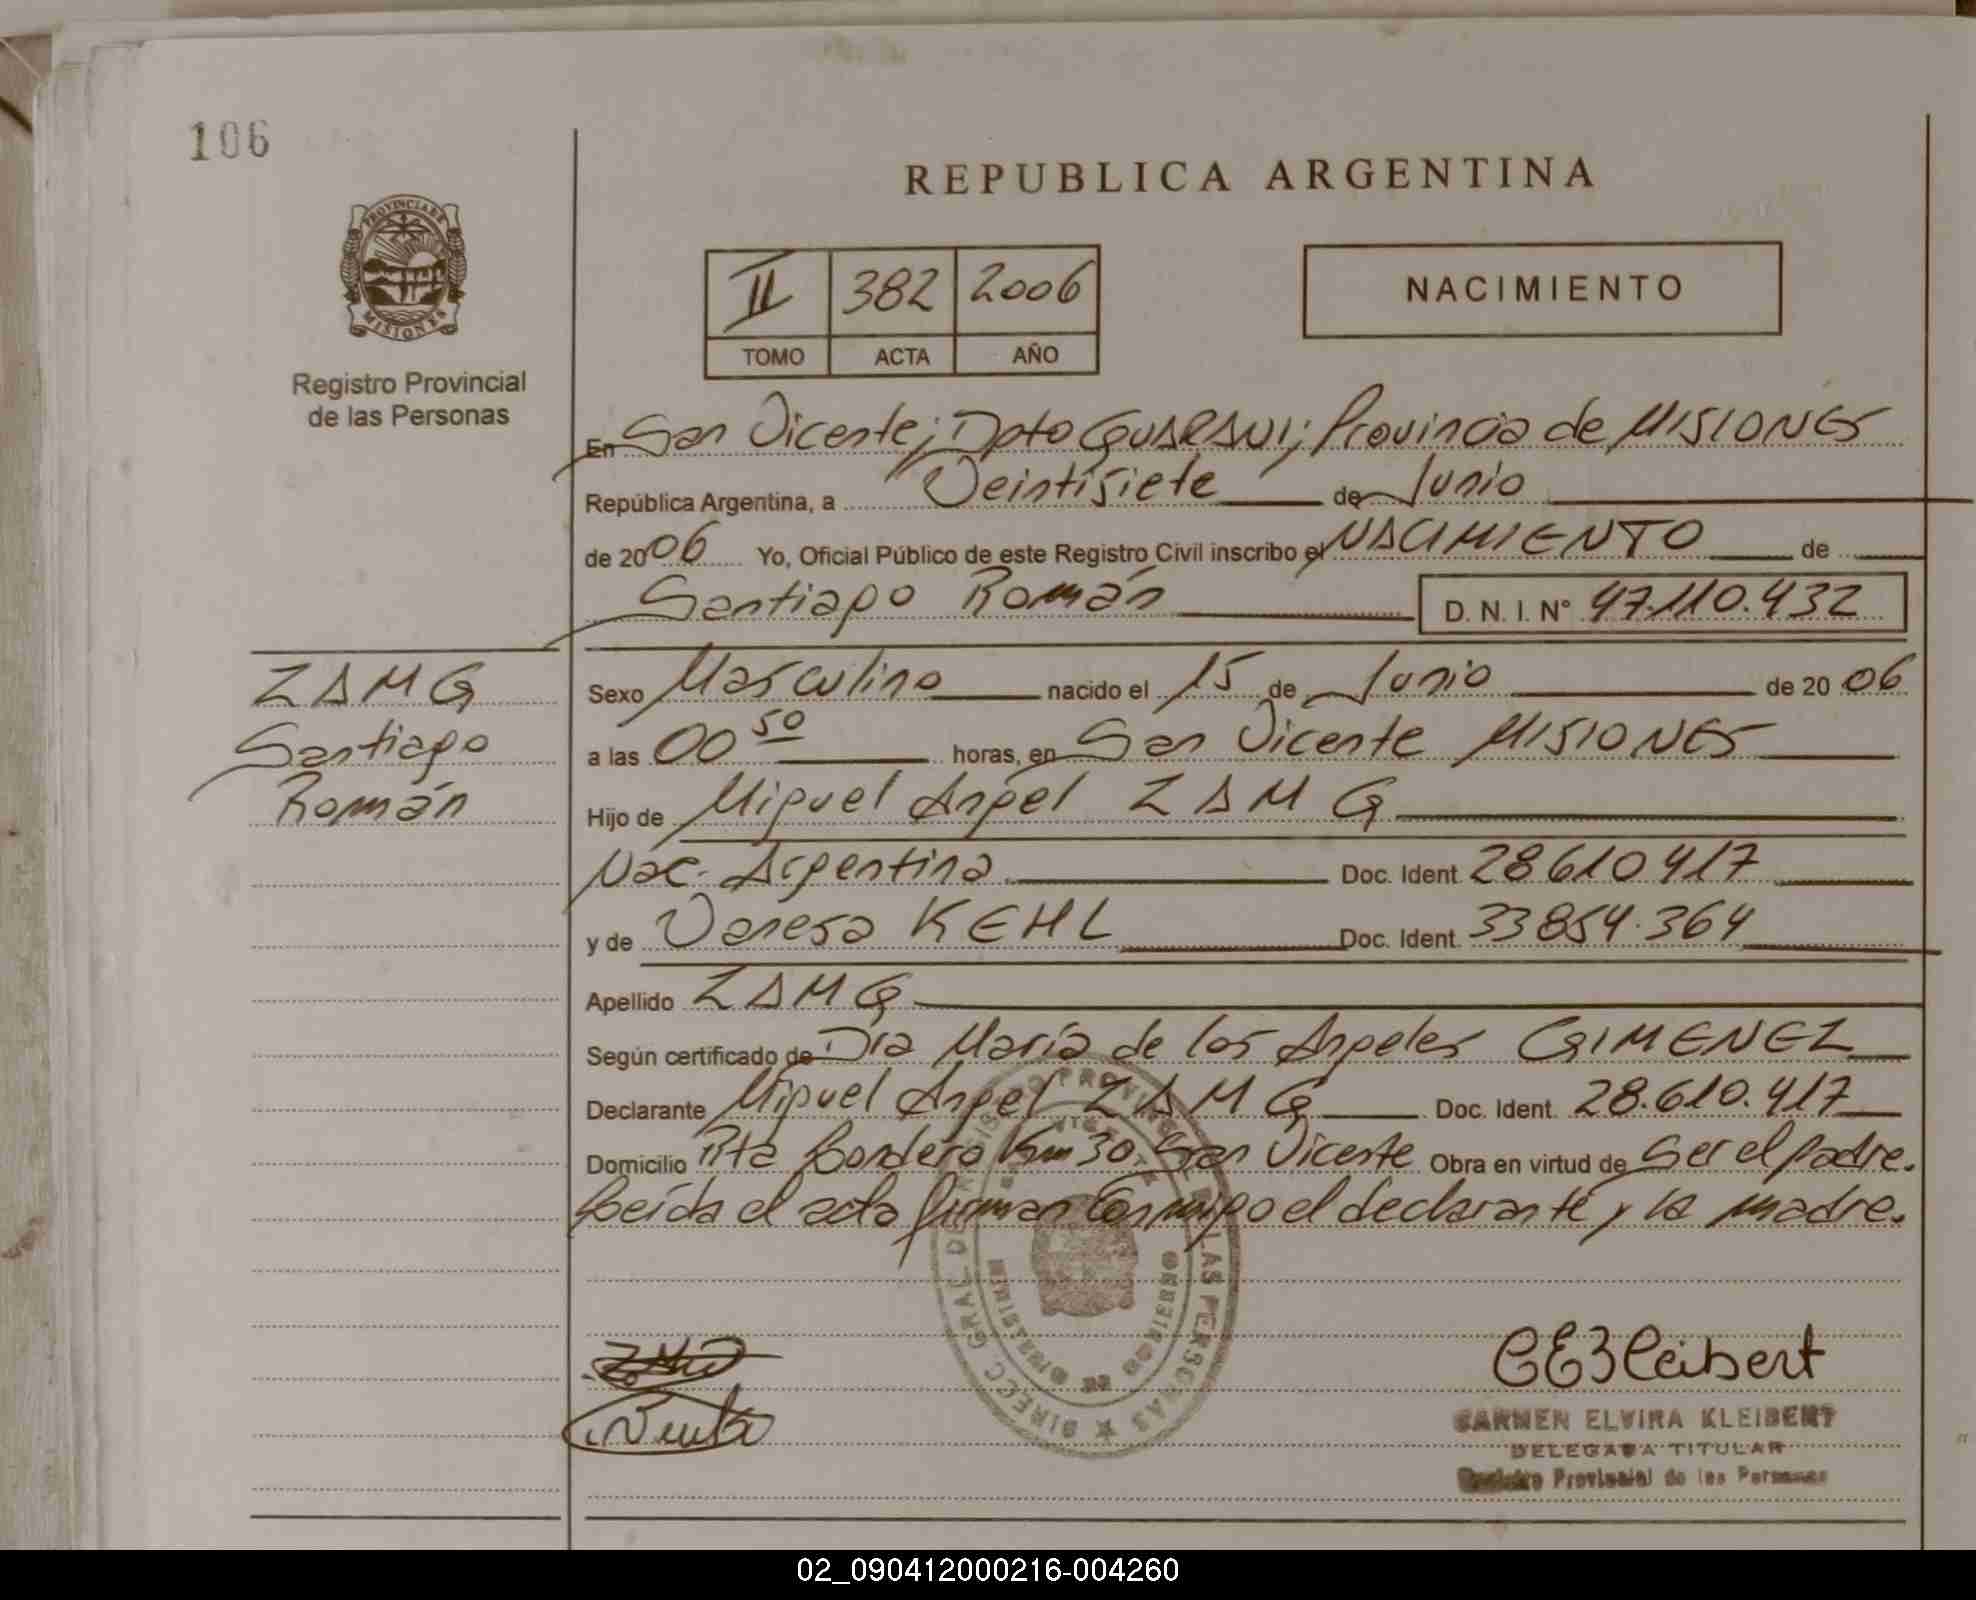 106
REPUBLICA ARGENTINA
PROVINCIA DE
MISIONES
II 382 2006
TOMO ACTA AÑO
NACIMIENTO
Registro Provincial
de las Personas
En San Vicente; Dpto GUARANI; Provincia de MISIONES
República Argentina, a Veintisiete de Junio
de 2006 Yo, Oficial Público de este Registro Civil inscribo el NACIMIENTO de
Santiago Román D. N. I. N° 47.110.432
ZAMG
Santiago
Román
Sexo Masculino nacido el 15 de Junio de 20 06
a las 00 50 horas, en San Vicente MISIONES
Hijo de Miguel Angel ZAMG
Nac. Argentina Doc. Ident. 28610417
y de Vanesa KEHL Doc. Ident. 33854.364
Apellido ZAMG
Según certificado de Dra María de los Angeles GIMENEZ
Declarante Miguel Angel ZAMG Doc. Ident. 28.610.417
Domicilio Pta Bordero Km 30 San Vicente Obra en virtud de Ser el padre.
Leída el acta firman Conmigo el declarante y la madre.
DIREC. GRAL. DEL REGISTRO PROVINCIAL DE LAS PERSONAS
CEKleibert
CARMEN ELVIRA KLEIBERT
DELEGADA TITULAR
Registro Provincial de las Personas
02_090412000216-004260